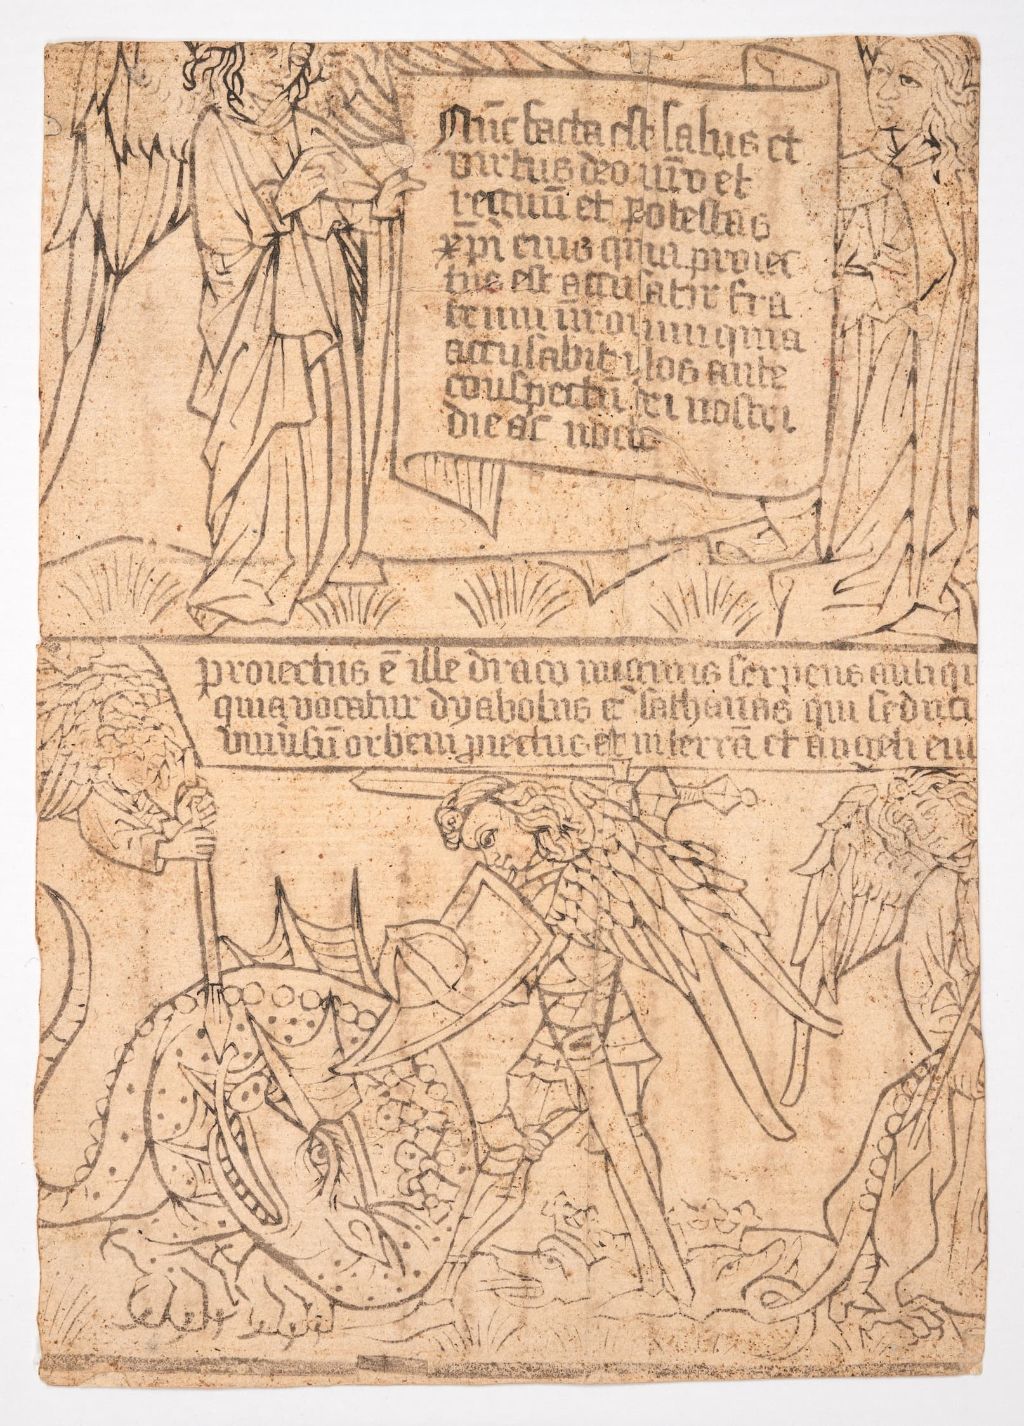 Nūc facta est salus et
virtus deo nr̄o et
regnū et potestas
xp̄i eius quia proiec
tus est accusatir fra
trum nr̄orum quia
accusabit illos ante
conspectū dei nostri
die ac nocte
proiectus ē ille draco magnus serpens antiqu
qui vocatur dyabolus et sathanas qui seduci
orbem piectus est in terrā et angeli eiu